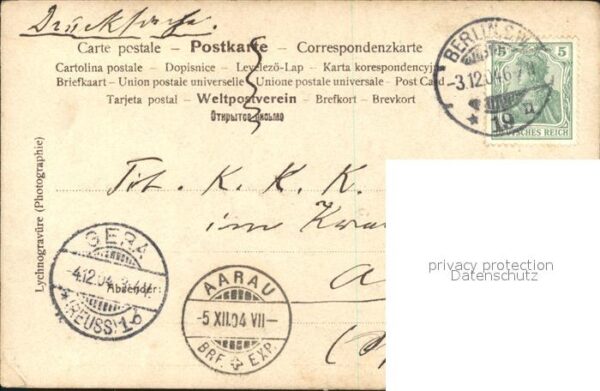 Drucksache.
Carte postale – Postkarte – Correspondenzkarte
Cartolina postale – Dopisnice – Levelező-Lap – Karta korespondencyjna
Briefkaart - Union postale universelle / Unione postale universale - Post Card
Tarjeta postal – Weltpostverein – Brefkort - Brevkort
Открытое письмо
BERLIN, S.W.
-3.12.04 6-7 N.
* 19 n
5 5
DEUTSCHES REICH
Lychnogravüre (Photographie)
Tit. K. K. K.
im
GERA
4.12.04
(REUSS) 1 b
Absender:
AARAU
-5 XII.04 VII-
BRF. EXP.
privacy protection
Datenschutz